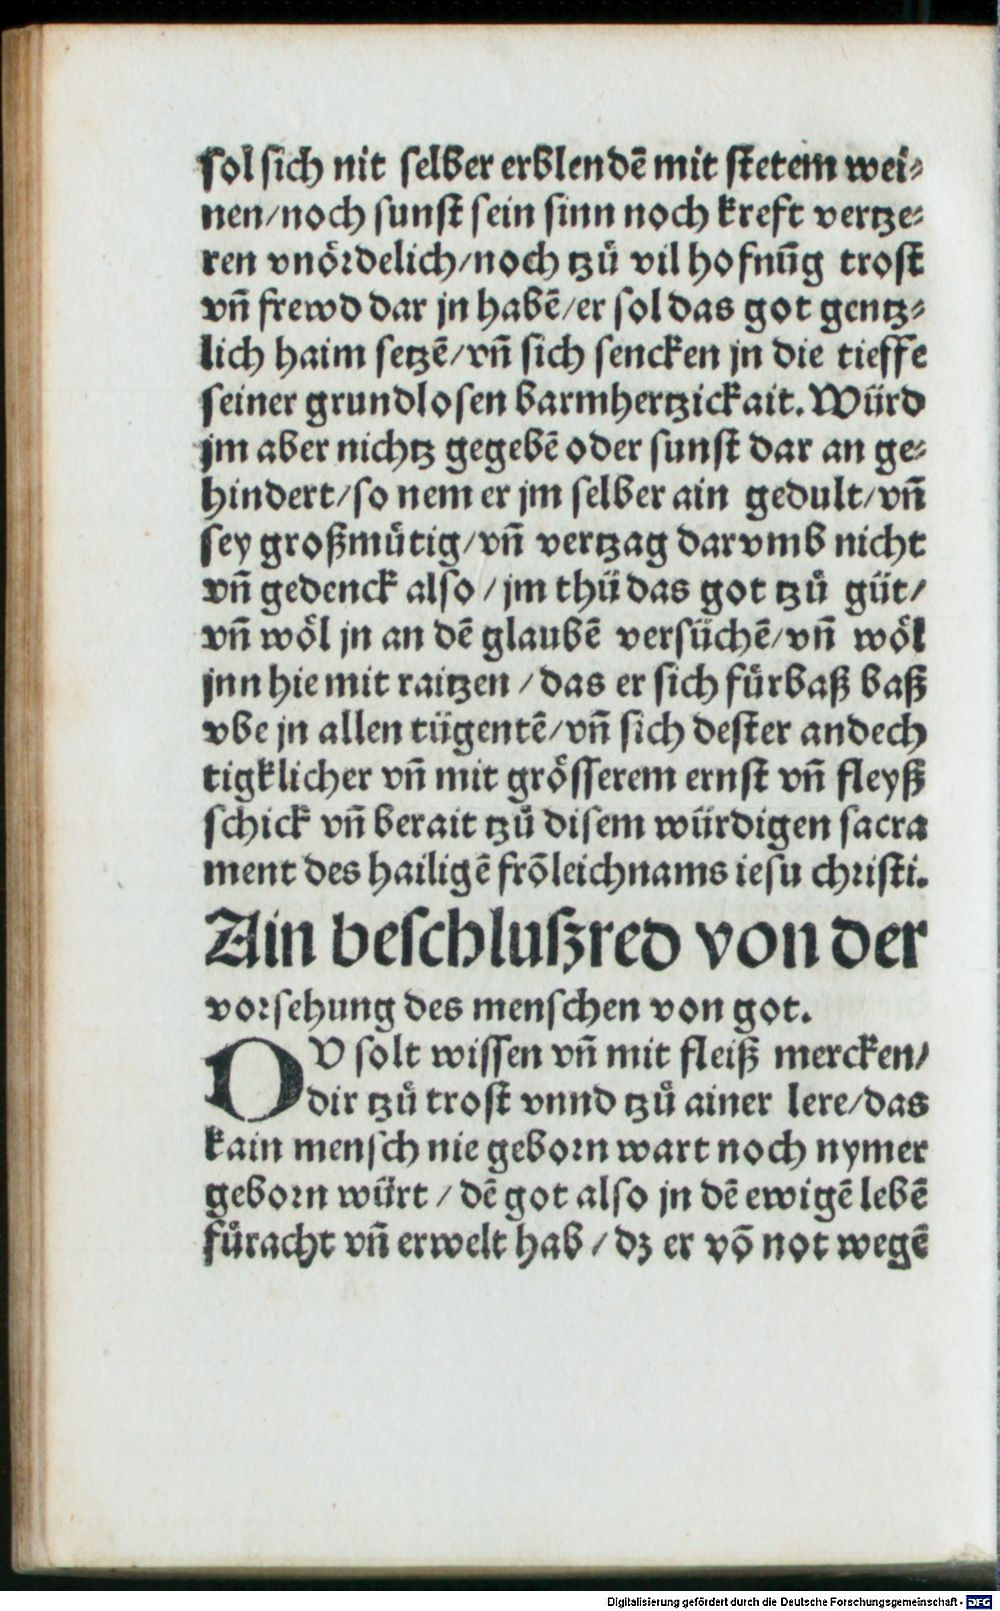 ſol ſich nit ſelber erblendē mit ſtetem wei⸗
nen/noch ſunſt ſein ſinn noch kreft vertze⸗
ren vnoͤrdelich/noch tzuͦ vil hofnūg troſt
vn̄ frewd dar jn habē/er ſol das got gentz⸗
lich haim ſetzē/vn̄ ſich ſencken jn die tieffe
ſeiner grundloſen barmhertzickait. Würd
jm aber nichtz gegebē oder ſunſt dar an ge⸗
hindert/ſo nem er jm ſelber ain gedult/vn̄
ſey großmuͤtig/vn̄ vertzag darvmb nicht
vn̄ gedenck alſo/jm thü das got tzuͦ güt/
vn̄ woͤl jn an dē glaubē verſüchē/vn̄ woͤl
jnn hie mit raitzen/das er ſich fuͤrbaß baß
vbe jn allen tügentē/vn̄ ſich deſter andech
tigklicher vn̄ mit groͤſſerem ernſt vn̄ fleyß
ſchick vn̄ berait tzuͦ diſem würdigen ſacra
ment des hailigē frōleichnams ieſu chriſti.
Ain beſchlußred von der
vorſehung des menſchen von got.
DV ſolt wiſſen vn̄ mit fleiß mercken/
dir tzuͦ troſt vnnd tzuͦ ainer lere/das
kain menſch nie geborn wart noch nymer
geborn würt/dē got alſo jn dē ewigē lebē
fuͤracht vn̄ erwelt hab/dz er vō not wegē
Digitalisierung gefördert durch die Deutsche Forschungsgemeinschaft - DFG